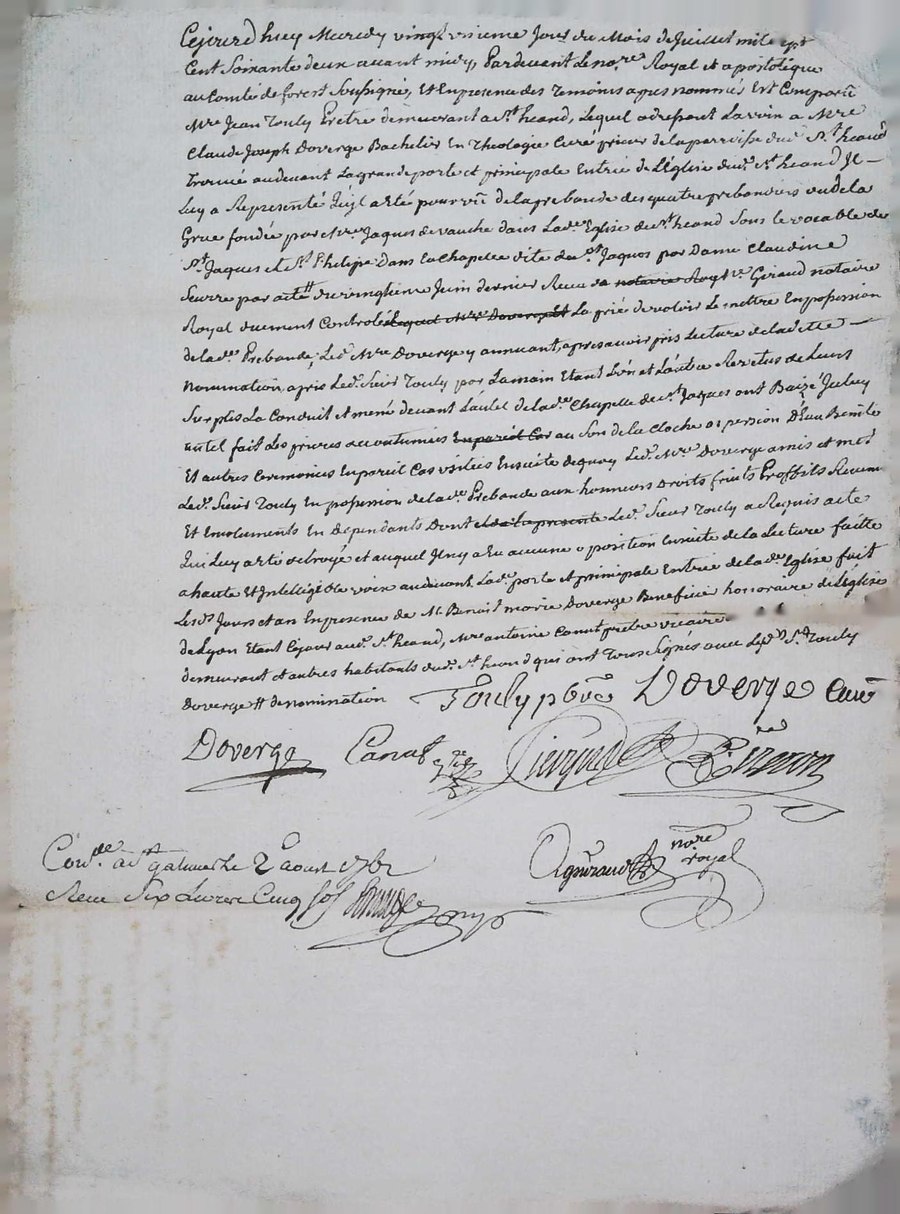 Cejourd huy Mecredy vingt unieme Jour du Mois de Juillet mil sept
Cent Soixante deux avant midy, Pardevant Le no.re Royal et apostolique
au Comté de forest Soussigné, Et En presence des Temoins apres nommés Est Comparû
M.re Jean Touly Pretre demeurant a S.t heand, Lequel adressant La voix a M.re
Claude Joseph Doverge Bachelier En Theologie Curé prieur de la parroisse dud. S.t heand
Trouvé audevant La grande porte et principale Entrée de L'Eglise dud. S.t heand Il
Luy a Representé Quil a été pourvû de la prebande des quatre prebandiers ou de la
Grue fondée par M.re Jaques devauche dans Lad.e Eglise de S.t heand Sous le vocable de
S.t Jaques et S.t Philipe dans La Chapelle dite de S.t Jaques par Dame Claudine
Seurre par acte du vingtieme Juin dernier Receu notaire Giraud notaire
Royal duement Controlé Lequel M.re Doverge La prié de vouloir Le mettre En possession
de lad.e Prebande, Led. M.re Doverge y annuant, apres avoir pris Lecture de ladette
nomination, a pris Led. Sieur Touly par La main Etant L'un et L'autre Revetus de Leurs
Surplis La Conduit et mené devant L'autel de lad.e Chapelle de S.t Jaques ont Baizé Iceluy
autel fait Les prieres accoutumées En pareil Cas au Son de la Cloche aspersion D'Eau Benite
Et autres Ceremonies En pareil Cas usitées Ensuite de quoy Led. M.re Doverge a mis et met
Led. Sieur Touly En possession de lad.e Prebande aux honneurs Droits fruits Proffits Revenu
Et Emoluments En Dependants Dont Led. Sieur Touly a Requis acte
Qui Luy a été octroyé et auquel Il ny a Eu aucune opposition Ensuite de la Lecture faitte
a haute Et Intelligible voix audevant Lad.e porte et principale Entrée de lad.e Eglise fait
Lesd. Jours et an En presence de M. Benoit marie Doverge Beneficié honoraire de L'église
de Lyon Etant Cejour aud. S.t heand, M.re antoine Canat pretre vicaire
demeurant et autres habitants dud. S.t heand qui ont Tous Signés avec Led. S.r Touly
Doverge # de nomination Touly pbre Doverge Curé
Doverge Canat
Giraud no.re royal
Con.lé a S.t galmier Le 2 aoust 1762
Receu Six Livres Cinq sols